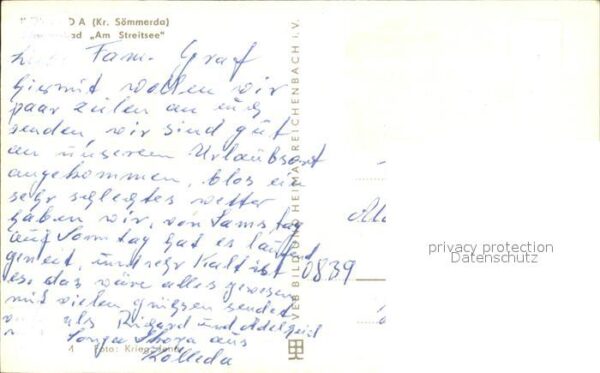 DA (Kr. Sömmerda)
bad „Am Streitsee"
Fam. Graf
hiermit wollen wir
paar zeilen an euch
senden, wir sind gut
an unserem Urlaubsort
angekommen, blos ein
sehr schlegtes wetter
haben wir, von Samstag
auf Sonntag hat es
und sehr Kalt ist
es, das wäre alles gewesen
mit vielen grüssen sendet
Rigard und Adelheid
Sonya aus
Foto: Krieg
Kölleda
VEB BILD UND HEIMAT REICHENBACH i. V.
0889
privacy protection
Datenschutz